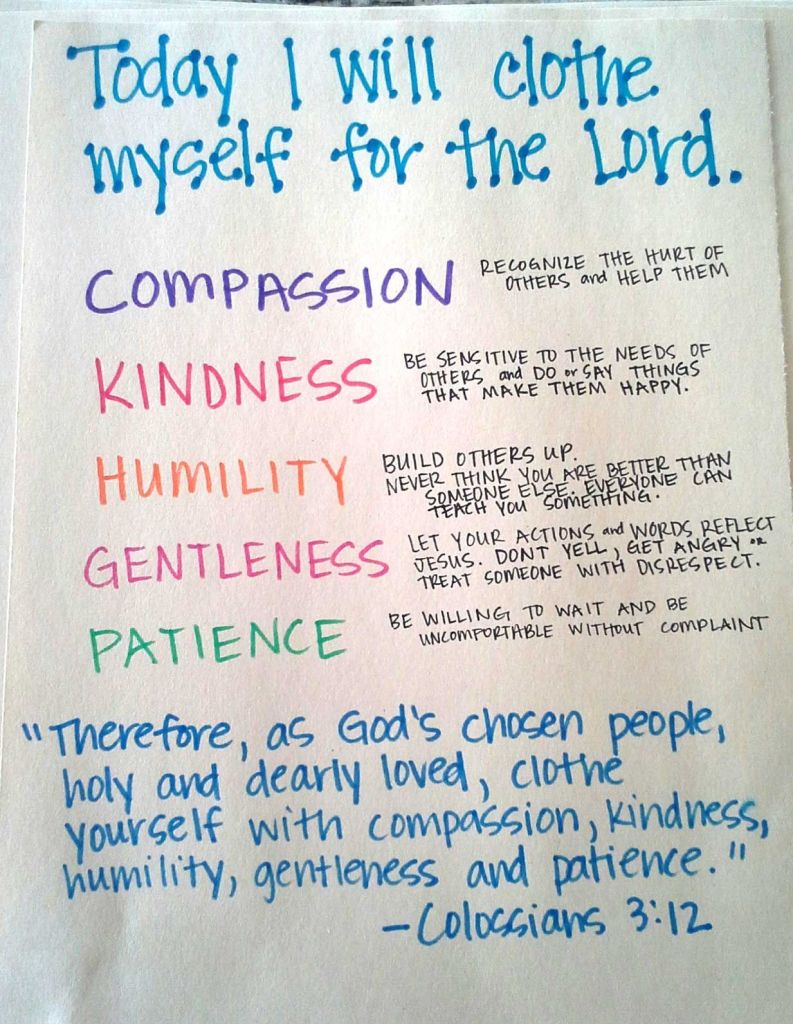 Today I will clothe
myself for the Lord.
COMPASSION
RECOGNIZE THE HURT OF
OTHERS and HELP THEM
KINDNESS
BE SENSITIVE TO THE NEEDS OF
OTHERS and DO or SAY THINGS
THAT MAKE THEM HAPPY.
HUMILITY
BUILD OTHERS UP.
NEVER THINK YOU ARE BETTER THAN
SOMEONE ELSE. EVERYONE CAN
TEACH YOU SOMETHING.
GENTLENESS
LET YOUR ACTIONS and WORDS REFLECT
JESUS. DONT YELL, GET ANGRY or
TREAT SOMEONE WITH DISRESPECT.
PATIENCE
BE WILLING TO WAIT AND BE
UNCOMFORTABLE WITHOUT COMPLAINT
"Therefore, as God's chosen people,
holy and dearly loved, clothe
yourself with compassion, kindness,
humility, gentleness and patience."
-Colossians 3:12